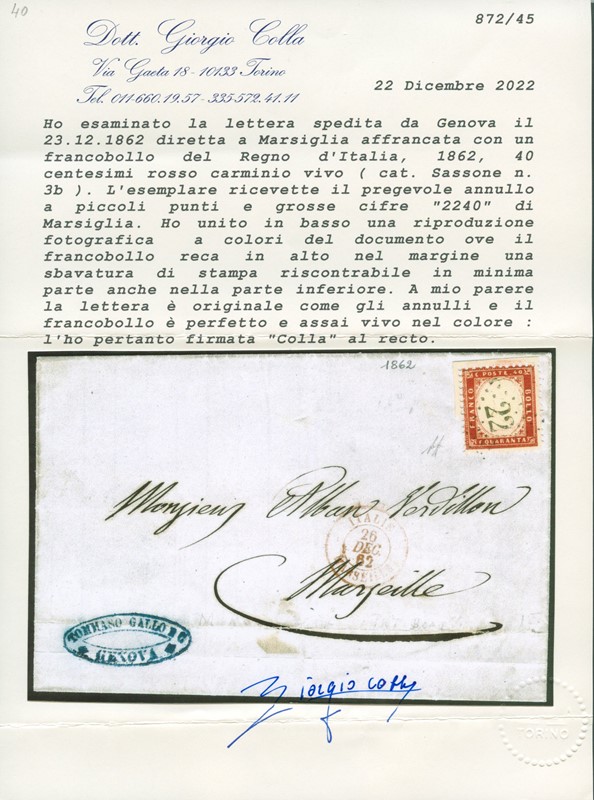 40
872/45
Dott. Giorgio Colla
Via Gaeta 18 - 10133 Torino
Tel. 011-660.19.57 - 335-572.41.11
22 Dicembre 2022
Ho esaminato la lettera spedita da Genova il
23.12.1862 diretta a Marsiglia affrancata con un
francobollo del Regno d'Italia, 1862, 40
centesimi rosso carminio vivo ( cat. Sassone n.
3b ). L'esemplare ricevette il pregevole annullo
a piccoli punti e grosse cifre "2240" di
Marsiglia. Ho unito in basso una riproduzione
fotografica a colori del documento ove il
francobollo reca in alto nel margine una
sbavatura di stampa riscontrabile in minima
parte anche nella parte inferiore. A mio parere
la lettera è originale come gli annulli e il
francobollo è perfetto e assai vivo nel colore :
l'ho pertanto firmata "Colla" al recto.
1862
C. POSTE 40
FRANCO
BOLLO
C. QUARANTA
22
Monsieur Alban Verdillon
ITALIE
26
DEC.
62
Marseille
TOMMASO GALLO
GENOVA
Giorgio Colla
TORINO